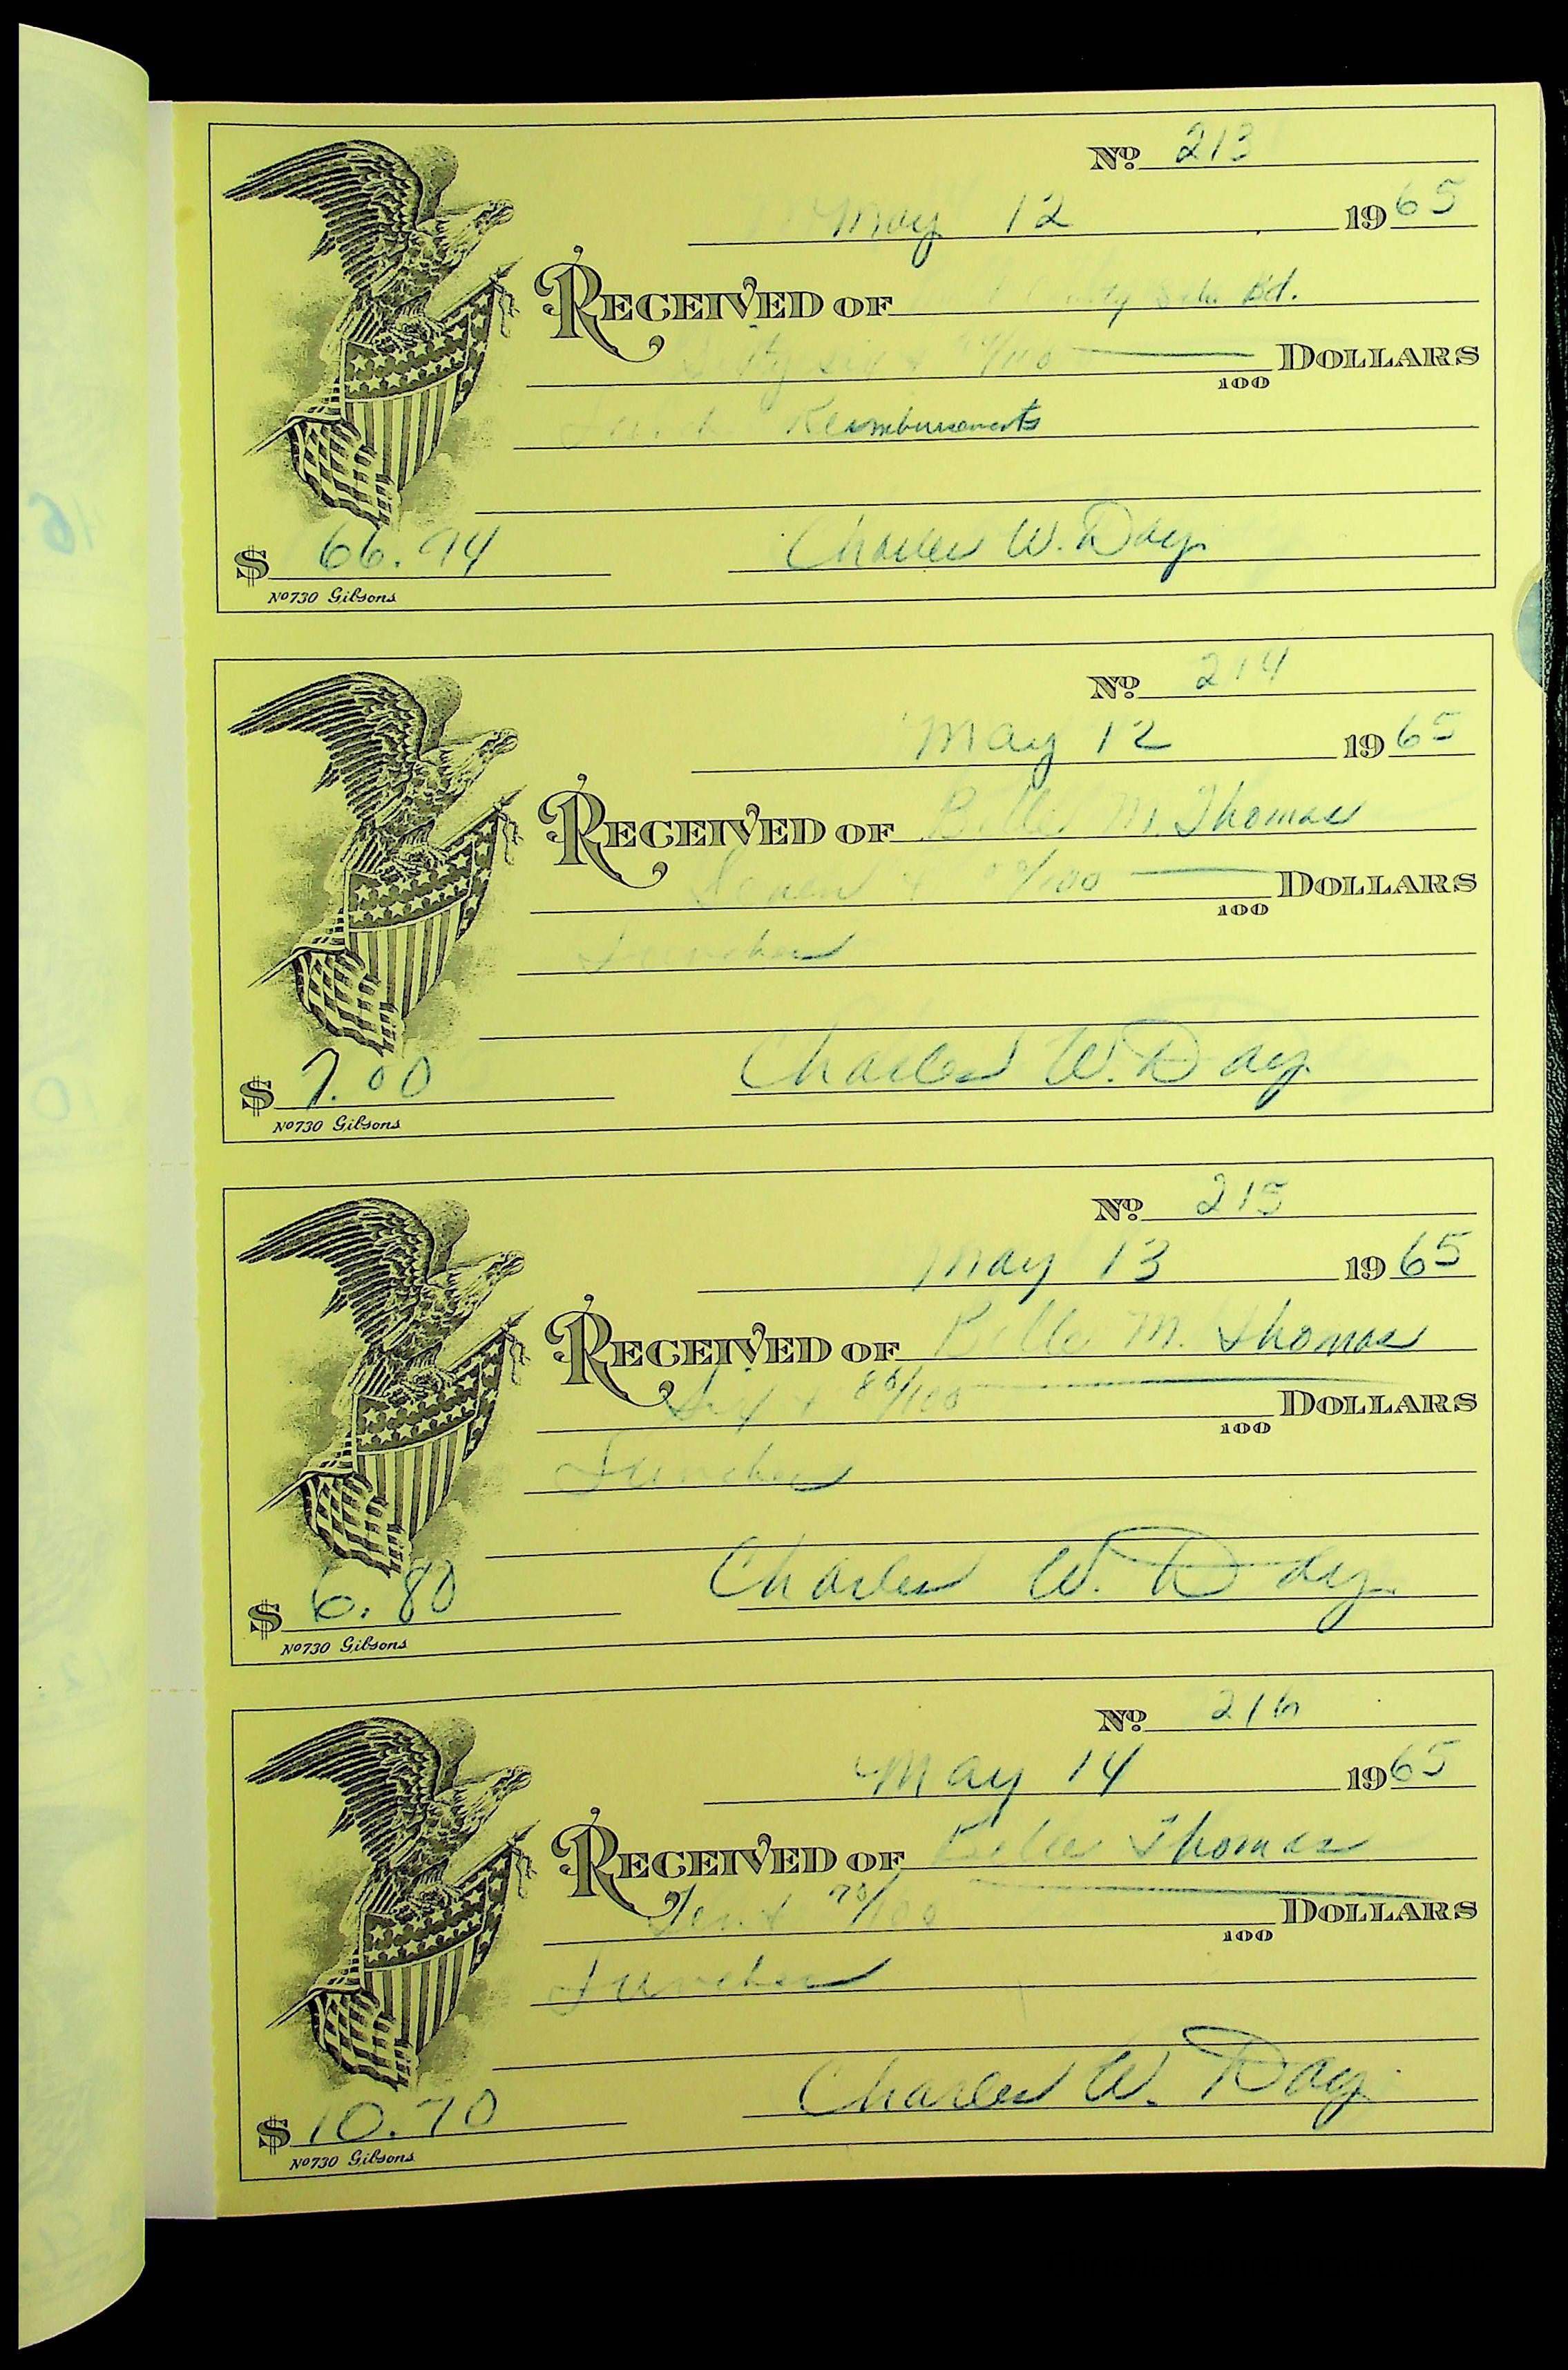 No. 213
May 12 1965
RECEIVED OF Bd.
Sixty six & 94/100 DOLLARS
100
Reimbursements
$ 66.94 Charles W. Day
No 730 Gibsons
No. 214
May 12 1965
RECEIVED OF Belle M. Thomas
Seven & 00/100 DOLLARS
100
Lunches
$ 7.00 Charles W. Day
No 730 Gibsons
No. 215
May 13 1965
RECEIVED OF Belle M. Thomas
Six & 80/100 DOLLARS
100
Lunches
$ 6.80 Charles W. Day
No 730 Gibsons
No. 216
May 14 1965
RECEIVED OF Belle Thomas
Ten & 70/100 DOLLARS
100
Lunches
$ 10.70 Charles W. Day
No 730 Gibsons